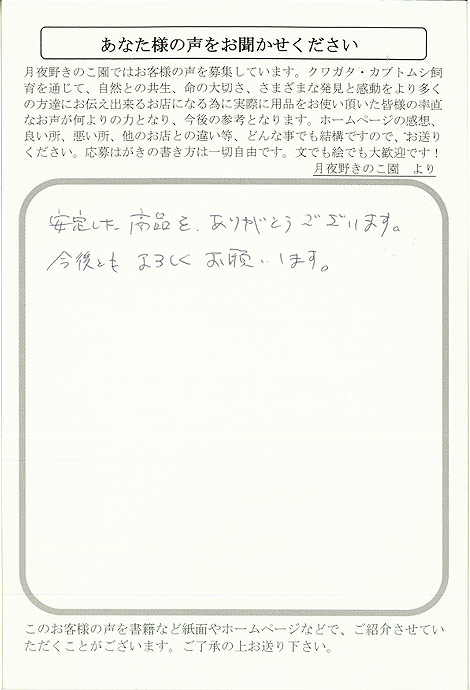 あなた様の声をお聞かせください
月夜野きのこ園ではお客様の声を募集しています。クワガタ・カブトムシ飼
育を通じて、自然との共生、命の大切さ、さまざまな発見と感動をより多く
の方達にお伝え出来るお店になる為に実際に用品をお使い頂いた皆様の率直
なお声が何よりの力となり、今後の参考となります。ホームページの感想、
良い所、悪い所、他のお店との違い等、どんな事でも結構ですので、お送り
ください。応募はがきの書き方は一切自由です。文でも絵でも大歓迎です！
月夜野きのこ園　より
安定した商品を、ありがとうございます。
今後ともよろしくお願いします。
このお客様の声を書籍など紙面やホームページなどで、ご紹介させてい
ただくことがございます。ご了承の上お送り下さい。